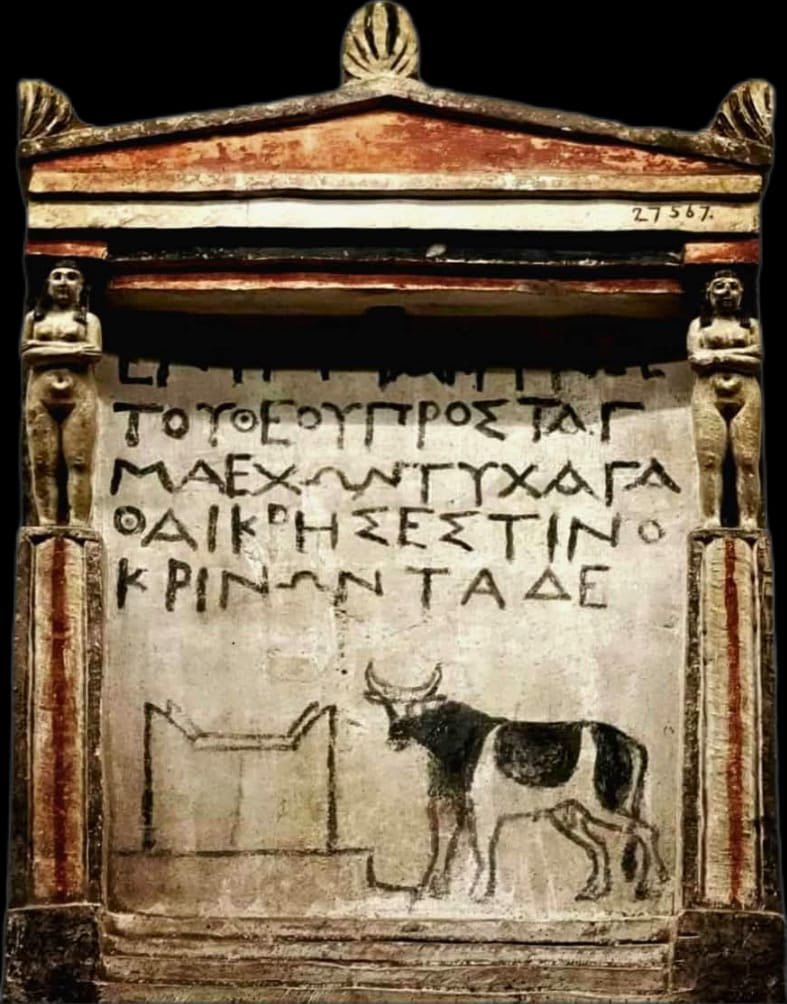 27567.
ΤΟΥΘΕΟΥΠΡΟΣΤΑΓ
ΜΑΕΧΩΝΤΥΧΑΓΑ
ΘΑΙΚΡΗΣΕΣΤΙΝΟ
ΚΡΙΝΩΝΤΑΔΕ